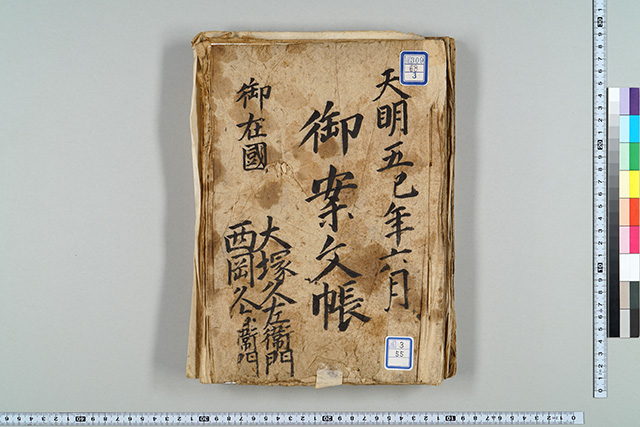 天明五巳年六月
御案文帳
御在國
大塚久左衛門
西岡久左衛門
3
55